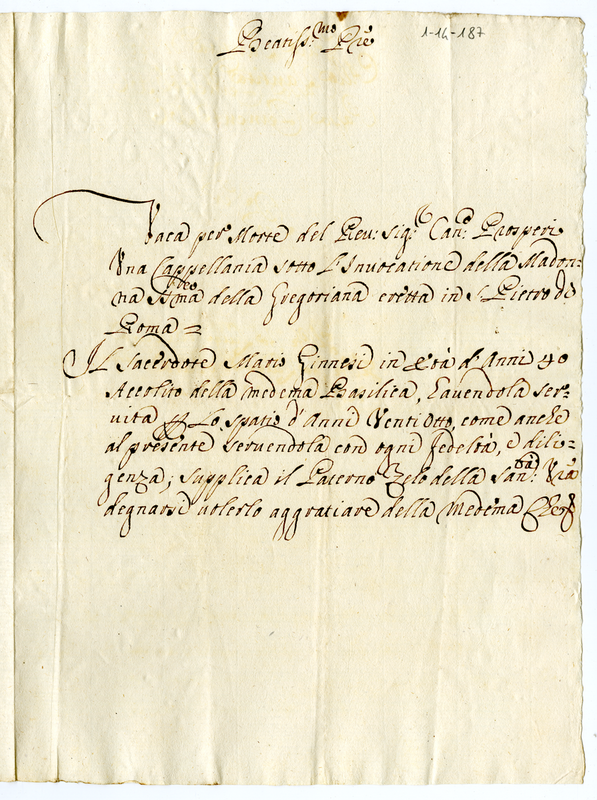 Beatiss.mo Prẽ
1-14-187
Vaca per Morte del Reu: sig:r Can:co Prosperi
Vna Cappellania sotto L'Inuocatione della Madon:
na SSma della Gregoriana eretta in S Pietro di
Roma =
Il Sacerdote Mario Ginnesi in età d'Anni 40
Accolito della medema Basilica, hauendola ser-
uita Lo spatio d'Anni Venti Otto, come anche
al presente seruendola con ogni fedeltà, e dili-
genza; supplica il Paterno Zelo della San:tà Vrã
degnarsi uolerlo aggratiare della Medema